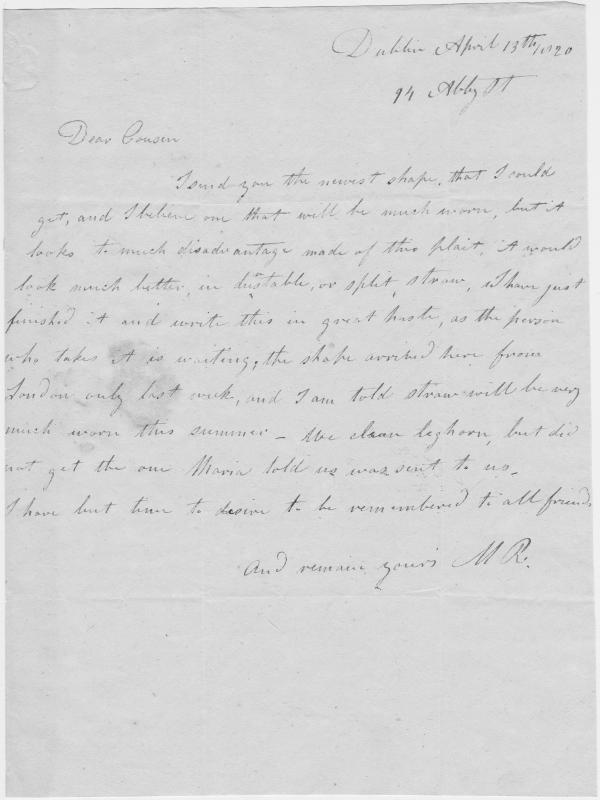 Dublin April 13th/1820
94 Abby St
Dear Cousen
I send you the newest shape, that I could
get, and I believe one that will be much worn, but it
looks to much disadvantage made of this plait, it would
look much better, in dunstable, or split straw, I have just
finished it and write this in great haste, as the person
who takes it is waiting, the shape arrived here from
London only last week, and I am told straw will be very
much worn this summer – We clean leghorn, but did
not get the one Maria told us was sent to us.
I have but time to desire to be remembered to all friends
and remain yours M R.